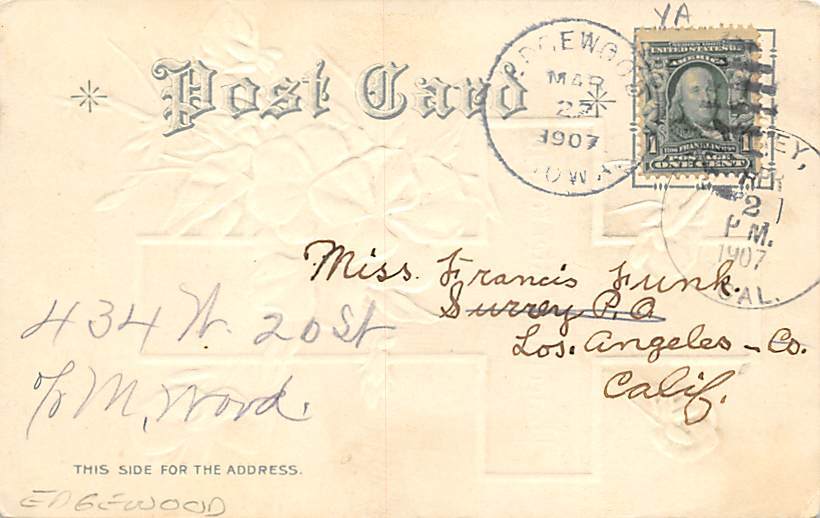 YA
Post Card
EDGEWOOD
MAR
25
1907
IOWA
SERIES 1902
UNITED STATES OF
AMERICA
1 1
BENJ. FRANKLIN
POSTAGE
ONE CENT
APR
2
P M.
1907
CAL.
Miss. Francis Funk.
Surrey P.O
Los. Angeles - Co.
Calif.
434 W. 20 St
c/o M. Wood.
THIS SIDE FOR THE ADDRESS.
EDGEWOOD